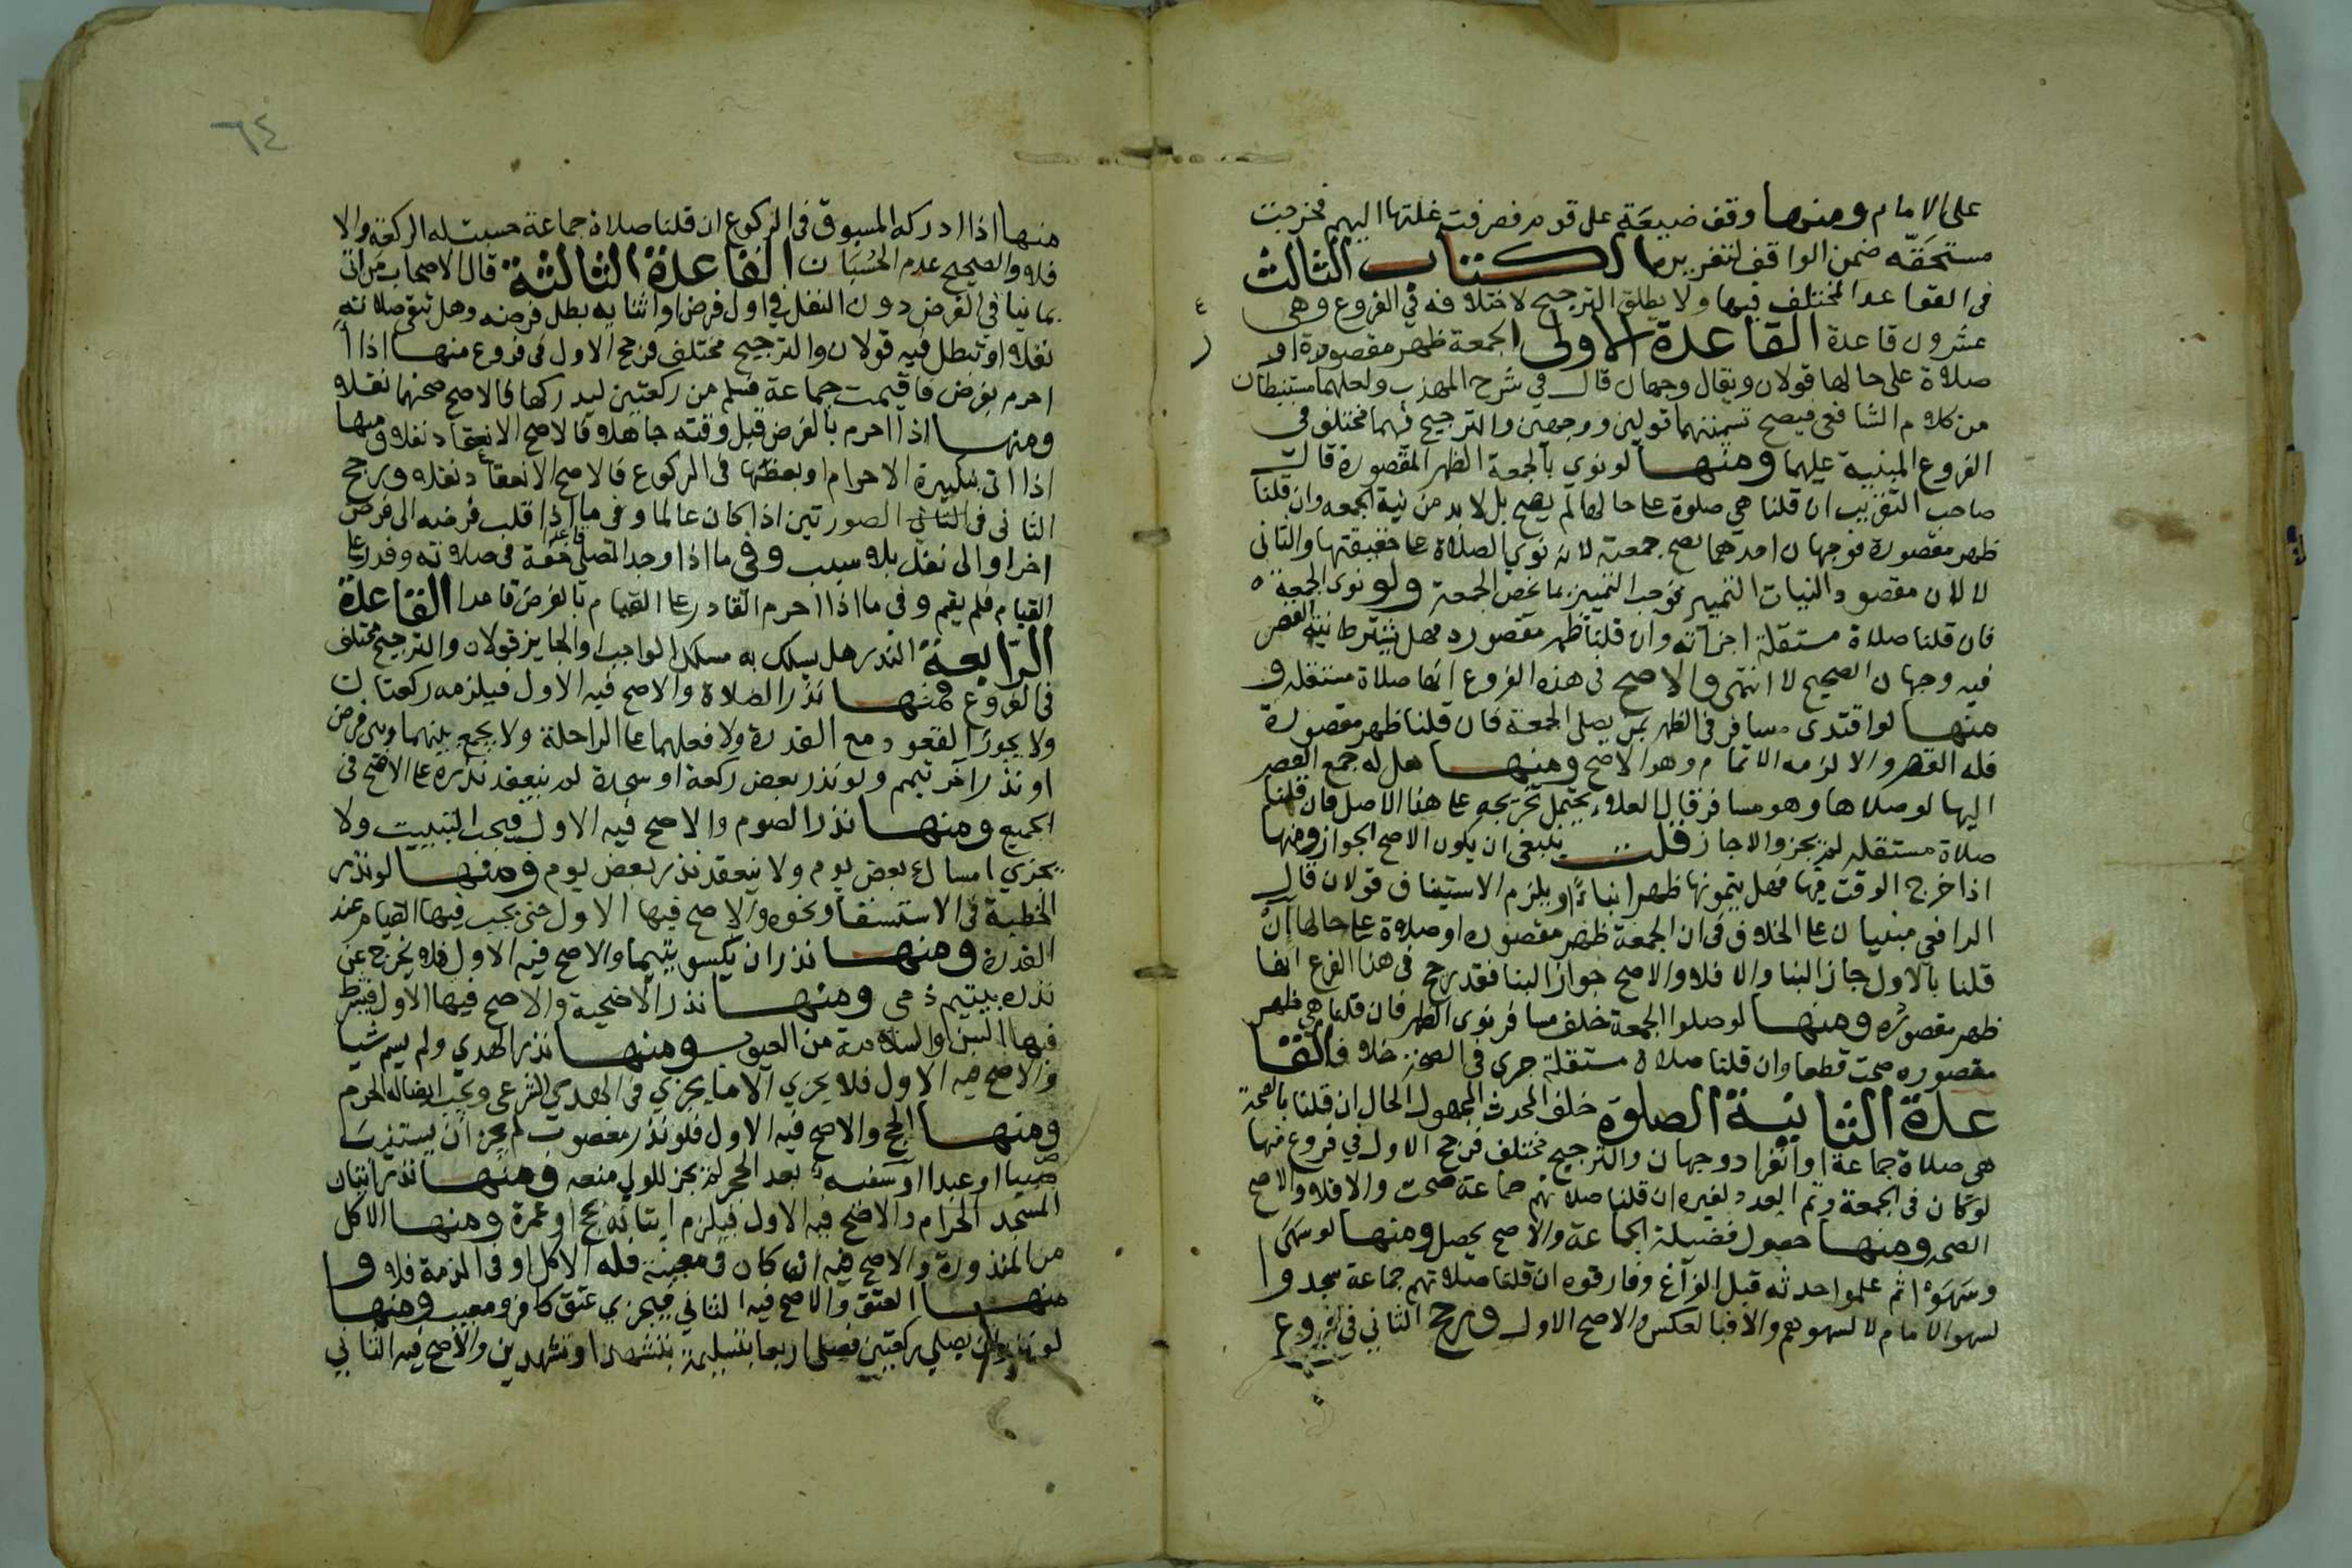 على الامام ومنها وقف ضيعة على قوم فصرفت غلتها اليهم فخرجت
مستحقه ضمن الواقف لتغريره الكتاب الثالث
فى القواعد المختلف فيها ولا يطلق الترجيح لاختلافه في الفروع وهى
عشرون قاعدة القاعدة الاولى الجمعة ظهر مقصورة او
صلاة على حالها قولان ويقال وجهان قال في شرح المهذب ولعلهما مستنبطان
من كلام الشافعى فيصح تسميتهما قولين ووجهين والترجيح فيهما مختلف فى
الفروع المبنية عليهما ومنها لو نوي بالجمعة الظهر المقصورة قال
صاحب التقريب ان قلنا هى صلوة على حالها لم يصح بل لابد من نية الجمعه وان قلنا
ظهر مقصورة فوجهان احدهما يصح جمعته لانه نوي الصلاة على حقيقتها والثانى
لا لان مقصود النيات التمييز فوجب التمييز بما يخص الجمعة ولو نوى الجمعة
فان قلنا صلاة مستقلة اجزأته وان قلنا ظهر مقصوره فهل يشترط نية القصر
فيه وجهان الصحيح لا انتهى والاصح فى هذه الفروع انها صلاة مستقله و
منها لو اقتدى مسافر فى الظهر بمن يصلى الجمعة فان قلنا ظهر مقصورة
فله القصر والا لزمه الاتمام وهو الاصح ومنها هل له جمع العصر
اليها لو صلاها وهو مسافر قال العلاء يحتمل تخريجه على هذا الاصل فان قلنا
صلاة مستقله لم يجز والا جاز قلت ينبغى ان يكون الاصح الجواز ومنها
اذا خرج الوقت فيها فهل يتمونها ظهرا بناءً او يلزم الاستيناف قولان قال
الرافعي مبنيان على الخلاف فى ان الجمعة ظهر مقصوره او صلاة على حالها ان
قلنا بالاول جاز البنا والا فلا والاصح جواز البنا فقد رجح فى هذا الفرع انها
ظهر مقصوره ومنها لو صلوا الجمعة خلف مسافر نوى الظهر فان قلنا هى ظهر
مقصوره صحت قطعا وان قلنا صلاة مستقلة جرى فى الصحة خلاف القا
عدة الثانية الصلوة خلف المحدث المجهول الحال ان قلنا بالصحة
هى صلاة جماعة او انفراد وجهان والترجيح مختلف فرجح الاول في فروع منها
لو كان فى الجمعة وتم العدد بغيره ان قلنا صلاتهم جماعة صحت والا فلا والاصح
الصحه ومنها حصول فضيلة الجماعة والاصح يحصل ومنها لو سهى
وسهوا ثم علموا حدثه قبل الفراغ وفارقوه ان قلنا صلاتهم جماعة سجدوا
لسهو الامام لا لسهوهم والا فبالعكس والاصح الاول ورجح الثاني فى فروع
٦٤
منها اذا ادركه المسبوق فى الركوع ان قلنا صلاة جماعة حسبت له الركعة والا
فلا والصحيح عدم الحسبان القاعدة الثالثة قال الاصحاب من اتى
بما ينافى الفرض دون النفل في اول فرض او اثنايه بطل فرضه وهل تبقى صلاته
نفلا او تبطل فيه قولان والترجيح مختلف فرجح الاول فى فروع منها اذا
احرم بفرض فاقيمت جماعة فسلم من ركعتين ليدركها فالاصح صحتها نفلا
ومنها اذا احرم بالفرض قبل وقته جاهلا فالاصح الانعقاد نفلا ومنها
اذا اتى بتكبيرة الاحرام او بعضها فى الركوع فالاصح الانعقاد نفلا ورجح
الثانى فى الصورتين اذا كان عالما وفى ما اذا قلب فرضه الى فرض
اخر او الى نفل بلا سبب وفى ما اذا وجد المصلى خفة فى صلاته وقدر على
القيام فلم يقم وفى ما اذا احرم القادر على القيام بالفرض قاعدا القاعدة
الرابعة النذر هل يسلك به مسلك الواجب او الجايز قولان والترجيح مختلف
فى الفروع فمنها نذر الصلاة والاصح فيه الاول فيلزمه ركعتان
ولا يجوز القعود مع القدرة ولا فعلهما على الراحلة ولا يجمع بينهما وبين فرض
او نذر آخر بتيمم ولو نذر بعض ركعة او سجدة لم ينعقد نذره على الاصح فى
الجميع ومنها نذر الصوم والاصح فيه الاول فيجب التبييت ولا
يجزي امساك بعض يوم ولا ينعقد نذر بعض يوم ومنها لو نذر
الخطبة فى الاستسقا ونحوه والاصح فيها الاول حتى يجب فيها القيام عند
القدرة ومنها نذر ان يكسو يتيما والاصح فيه الاول فلا يخرج عن
نذره بيتيم ذمى ومنها نذر الاضحية والاصح فيها الاول فيشترط
فيها السن والسلامة من العيوب ومنها نذر الهدي ولم يسم شيا
والاصح فيه الاول فلا يجزي الا ما يجزي فى الهدي الشرعى ويجب ايصاله الحرم
ومنها الحج والاصح فيه الاول فلو نذر معضوب لم يجز ان يستنيب
صبيا او عبدا او سفيه بعد الحجر لم يجز للولي منعه ومنها نذر اتيان
المسجد الحرام والاصح فيه الاول فيلزم اتيانه بحج او عمرة ومنها الاكل
من المنذورة والاصح فيه ان كان فى معينة فله الاكل او فى الذمة فلا و
منها العتق والاصح فيه الثاني فيجزي عتق كافر ومعيب ومنها
لو نذر ان يصلي ركعتين فصلى اربعا بتسليمة بتشهد او تشهدين والاصح فيه الثاني